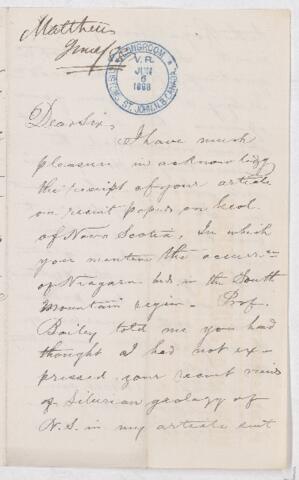 Matthew
LONG ROOM
V.R.
JUN
6
1888
CUSTOMS, ST. JOHN, N.B. CANADA
Dear Sir,
I have much
pleasure in acknowledg
the receipt of your article
on recent papers on Geol.
of Nova Scotia, In which
your mention the occurr-ce
of Niagara beds in the South
Mountain region. Prof.
Bailey told me you had
thought I had not ex-
pressed your recent views
of Silurian geology of
N.S. in my article sent